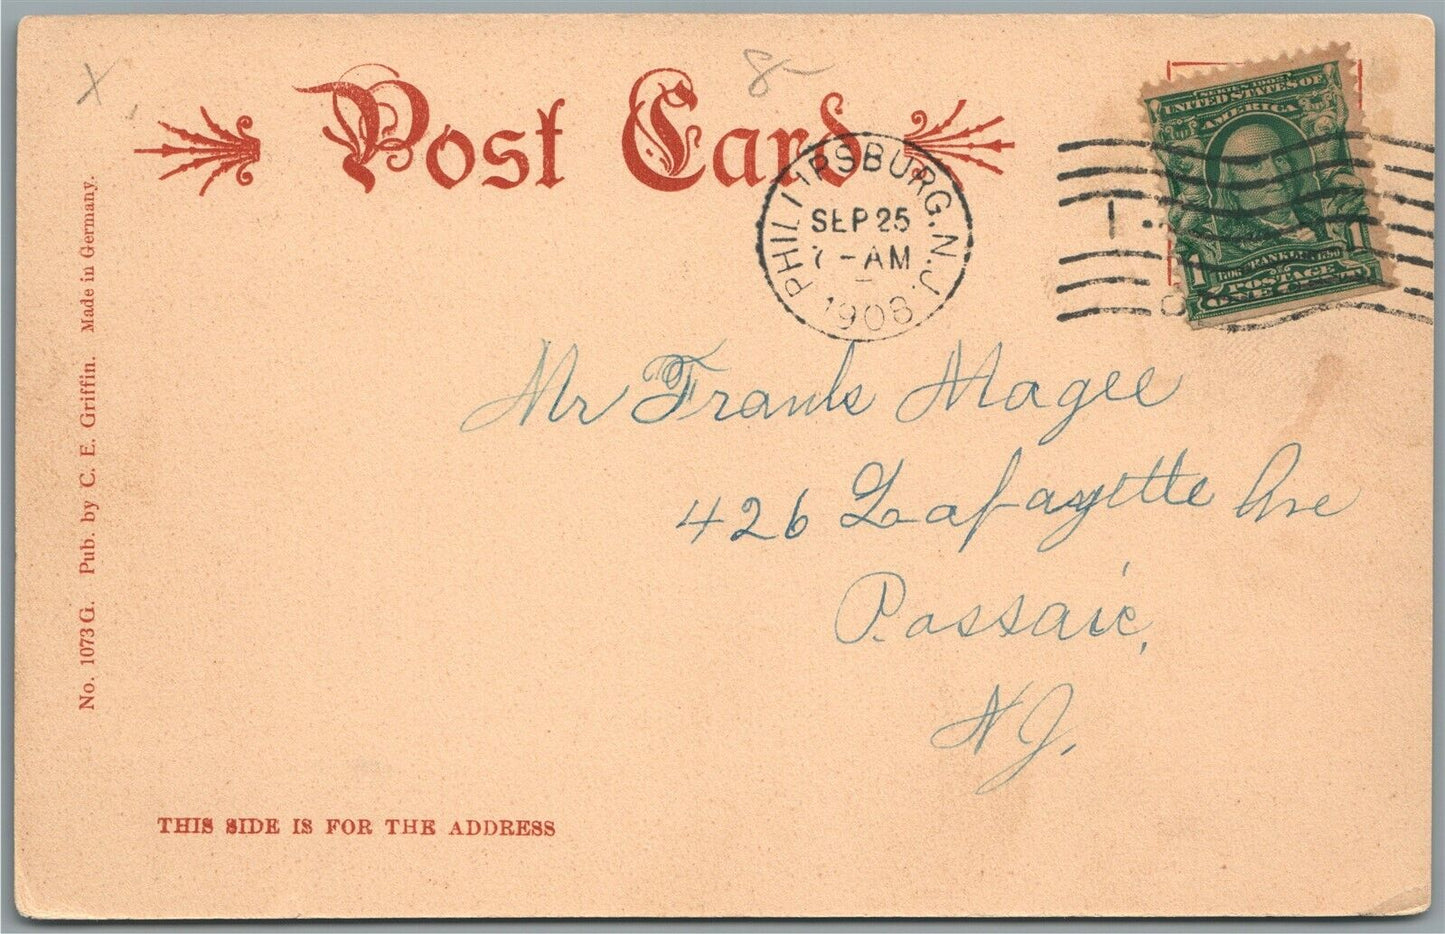 X
8-
Post Card
PHILLIPSBURG. N.J.
SEP 25
7-AM
1908
SERIES 1902
UNITED STATES OF
AMERICA
1 1
1706 FRANKLIN 1790
POSTAGE
ONE CENT
1
Mr Frank Magee
426 Lafayette Ave
Passaic,
N.J.
No. 1073 G. Pub. by C. E. Griffin. Made in Germany.
THIS SIDE IS FOR THE ADDRESS